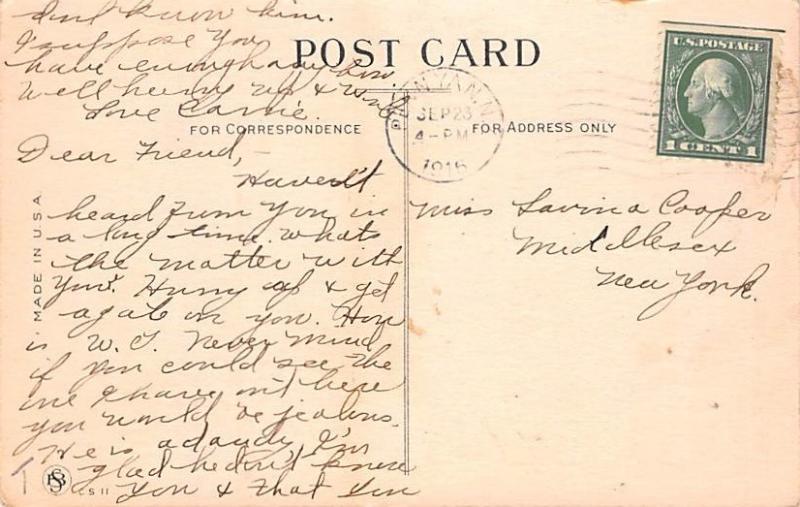 POST CARD
FOR CORRESPONDENCE
FOR ADDRESS ONLY
Dear Friend,-
Haven't
heard from you in
a long time. whats
the matter with
you. Hurry up & get
a gait on you. How
is W. T. Never mind
if you could see the
one I have out here
you would be jealous.
He is a dandy I'm
glad he don't know
you & that you
dont know him.
I suppose you
have enough any how
Well hurry up & write
Love Carrie.
PENN YAN N.Y.
SEP 23
4-PM
1915
U.S. POSTAGE
1 CENT 1
Miss Lavina Cooper
Middlesex
New York.
MADE IN U.S.A.
S 11